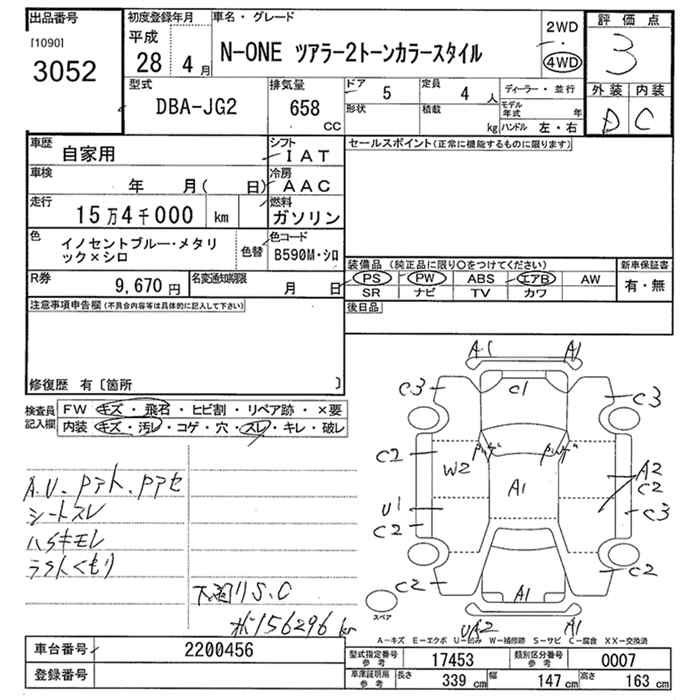 出品番号
[1090]
3052
初度登録年月
平成
28 4 月
車名・グレード
N-ONE ツアラー2トーンカラースタイル
2WD
4WD
評価点
3
外装 内装
D C
型式
DBA-JG2
排気量
658
CC
ドア 5
定員 4 人
形状
積載 kg
ディーラー・並行
モデル年式 年
ハンドル 左・右
車歴
自家用
シフト
IAT
車検
年 月( 日)
冷房
AAC
走行
15万4千000 km
燃料
ガソリン
色
イノセントブルー・メタリ
ック×シロ
色替
色コード
B590M・シロ
R券
9,670 円
名変通知期限
月 日
セールスポイント(正常に機能するものに限ります)
装備品 (純正品に限り○をつけてください)
PS PW ABS エアB AW
SR ナビ TV カワ
新車保証書
有・無
後日品
注意事項申告欄(不具合内容等は具体的に記入して下さい)
修復歴 有〔箇所 〕
検査員
記入欄
FW キズ・飛石・ヒビ割・リペア跡・×要
内装 キズ・汚レ・コゲ・穴・スレ・キレ・破レ
シートスレ
ライトくもり
下廻りS.C
156296 km
A1 A1
C3 C1 C3
C2 W2 A1 A2
C2
U1 C3
C2
C2 A1 C2
UA2 A1
スペア
A-キズ E-エクボ U-凹み W-補修跡 S-サビ C-腐食 XX-交換済
車台番号
2200456
登録番号
型式指定番号
参考
17453
類別区分番号
参考
0007
車庫証明用
参考
長さ 339 cm 幅 147 cm 高さ 163 cm